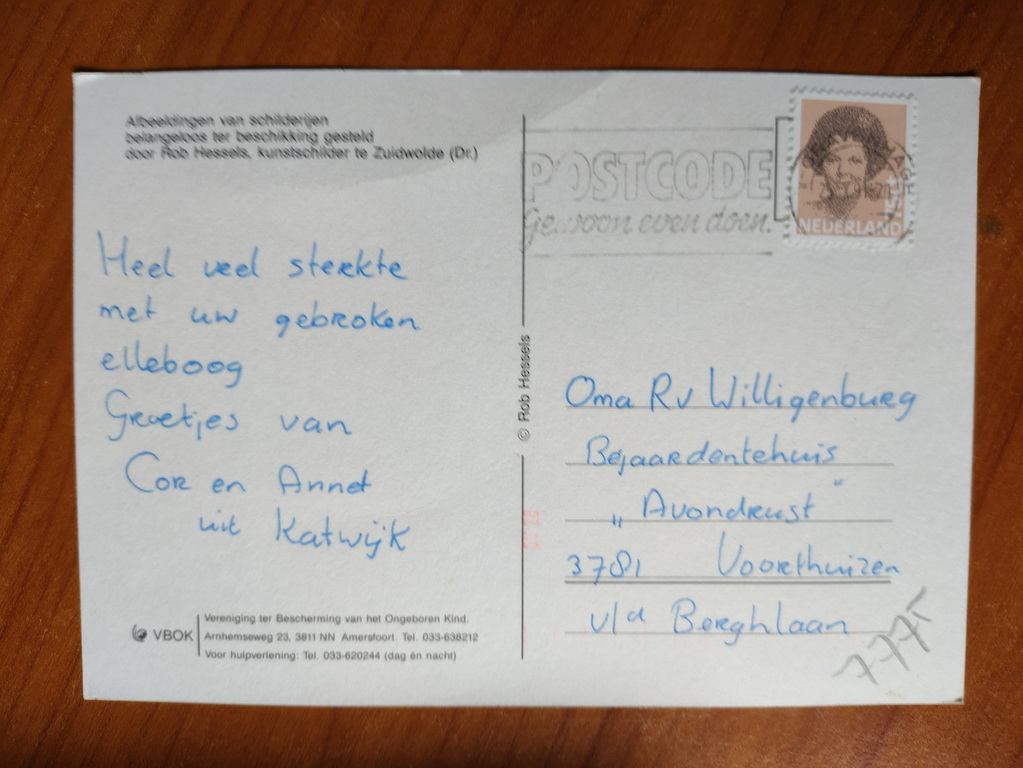 Afbeeldingen van schilderijen
belangeloos ter beschikking gesteld
door Rob Hessels, kunstschilder te Zuidwolde (Dr.)
Heel veel sterkte
met uw gebroken
elleboog
Groetjes van
Cor en Annet
uit Katwijk
VBOK
Vereniging ter Bescherming van het Ongeboren Kind.
Arnhemseweg 23, 3811 NN Amersfoort. Tel. 033-638212
Voor hulpverlening: Tel. 033-620244 (dag èn nacht)
© Rob Hessels
POSTCODE
Gewoon even doen.
NEDERLAND
Oma Rv Willigenburg
Bejaardentehuis
„Avondrust"
3781 Voorthuizen
v/d Berghlaan